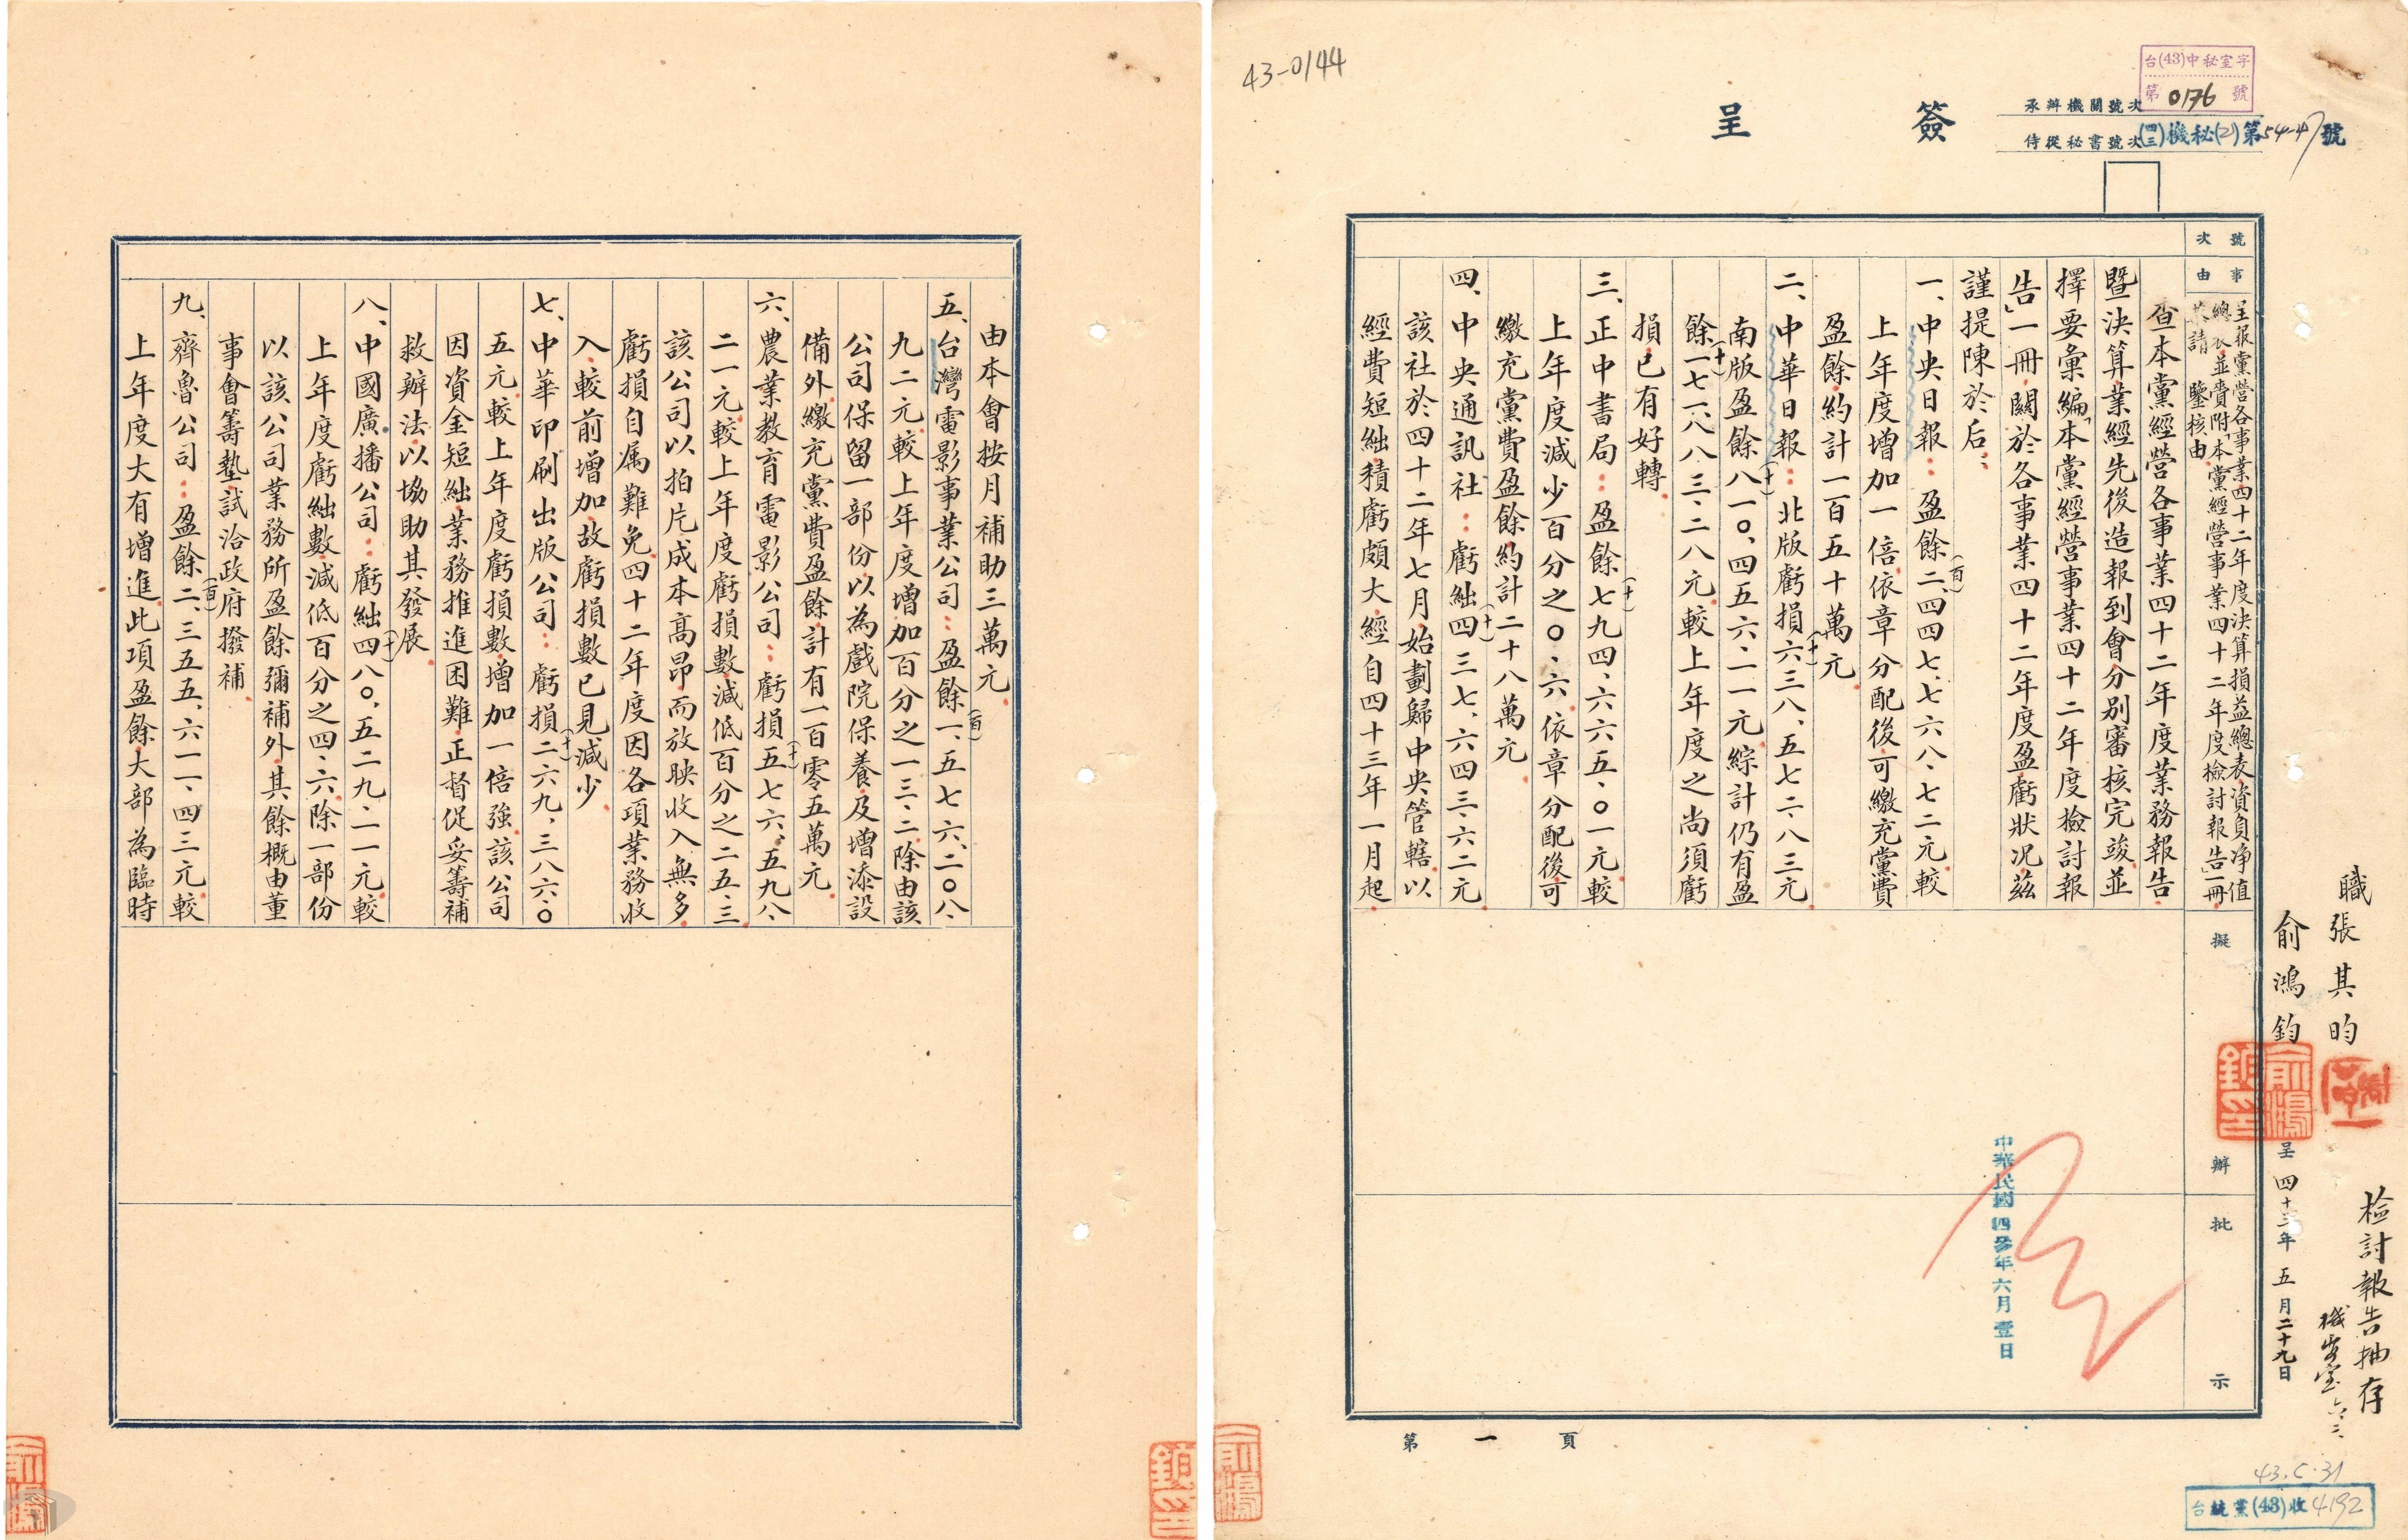 43-0144
簽呈
承辦機關號次
台(43)中秘室字
第0176號
侍從秘書號次
(四三)機秘(2)第54-47號
號次
事由
呈報黨營各事業四十二年度決算損益總表資負淨值
總表並賚附「本黨經營事業四十二年度檢討報告」一冊
恭請 鑒核由
查本黨經營各事業四十二年度業務報告
暨決算業經先後造報到會分別審核完竣並
擇要彙編「本黨經營事業四十二年度檢討報
告」一冊關於各事業四十二年度盈虧狀況茲
謹提陳於后：
一、中央日報：盈餘二、四四七、七六八、七二元較
(百)
上年度增加一倍依章分配後可繳充黨費
盈餘約計一百五十萬元
(十)
二、中華日報：北版虧損六三八、五七二、八三元
(十)
南版盈餘八一〇、四五六、一一元綜計仍有盈
(十)
餘一七一、八八三、二八元較上年度之尚須虧
損已有好轉
三、正中書局：盈餘七九四、六六五、〇一元較
(十)
上年度減少百分之〇、六依章分配後可
繳充黨費盈餘約計二十八萬元
四、中央通訊社：虧絀四三七、六四三、六二元
(十)
該社於四十二年七月始劃歸中央管轄以
經費短絀積虧頗大經自四十三年一月起
擬辦
批示
職張其昀
俞鴻鈞
呈 四十三年五月二十九日
檢討報告抽存
機要室 六、二、
中華民國四參年六月壹日
第一頁
43.C.31
台統業(43)收4192
由本會按月補助三萬元
五、台灣電影事業公司：盈餘一、五七六、二〇八、
(百)
九二元較上年度增加百分之一三、二除由該
公司保留一部份以為戲院保養及增添設
備外繳充黨費盈餘計有一百零五萬元
六、農業教育電影公司：虧損五七六、五九八、
(十)
二一元較上年度虧損數減低百分之二五、三
該公司以拍片成本高昂而放映收入無多
虧損自屬難免四十二年度因各項業務收
入較前增加故虧損數已見減少
七、中華印刷出版公司：虧損二六九、三八六、〇
(十)
五元較上年度虧損數增加一倍強該公司
因資金短絀業務推進困難正督促妥籌補
救辦法以協助其發展
八、中國廣播公司：虧絀四八〇、五二九、一一元較
(十)
上年度虧絀數減低百分之四、六除一部份
以該公司業務所盈餘彌補外其餘概由董
事會籌墊試洽政府撥補
九、齊魯公司：盈餘二、三五五、六一一、四三元較
(百)
上年度大有增進此項盈餘大部為臨時